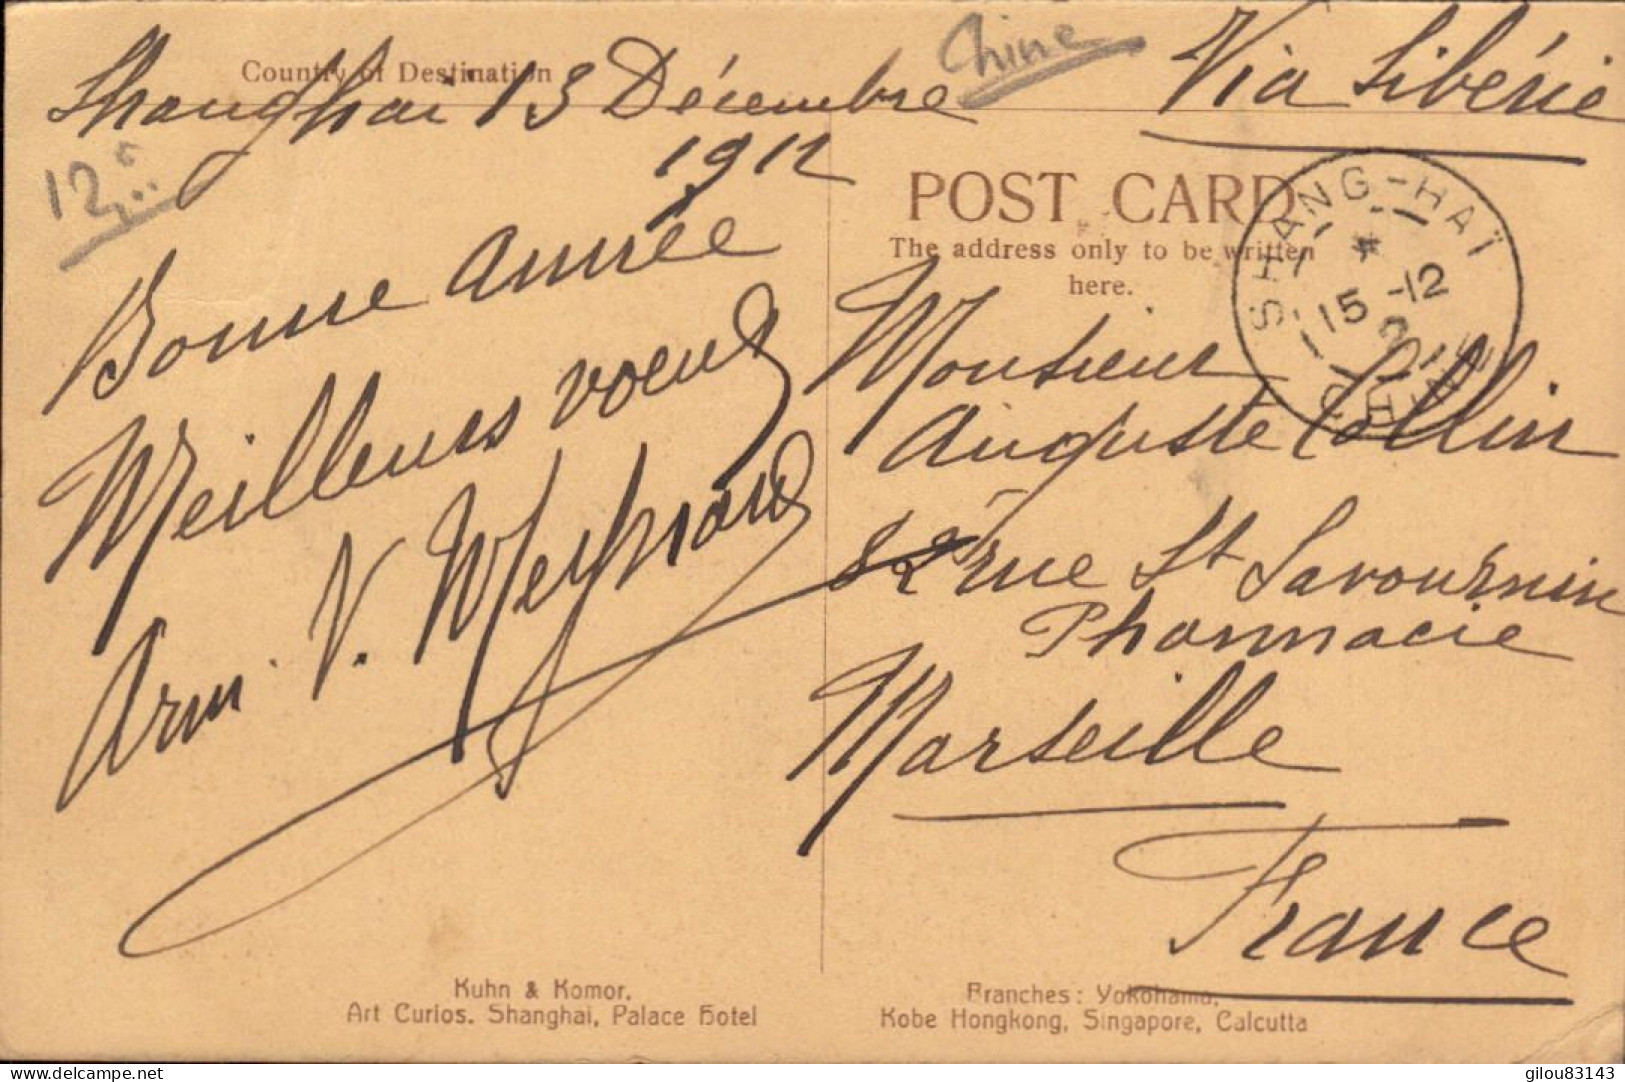 Chine
Via Sibérie
Country of Destination
Shanghai 13 Décembre
1912
12
Bonne année
Meilleurs voeux
Arm. V.
POST CARD
The address only to be written
here.
SHANG-HAÏ
15 -12
CHINE
Monsieur
Auguste Collin
82 rue St Savournin
Pharmacie
Marseille
France
Kuhn & Komor.
Art Curios. Shanghai, Palace Hotel
Branches: Yokohama,
Kobe Hongkong, Singapore, Calcutta
delcampe.net
gilou83143